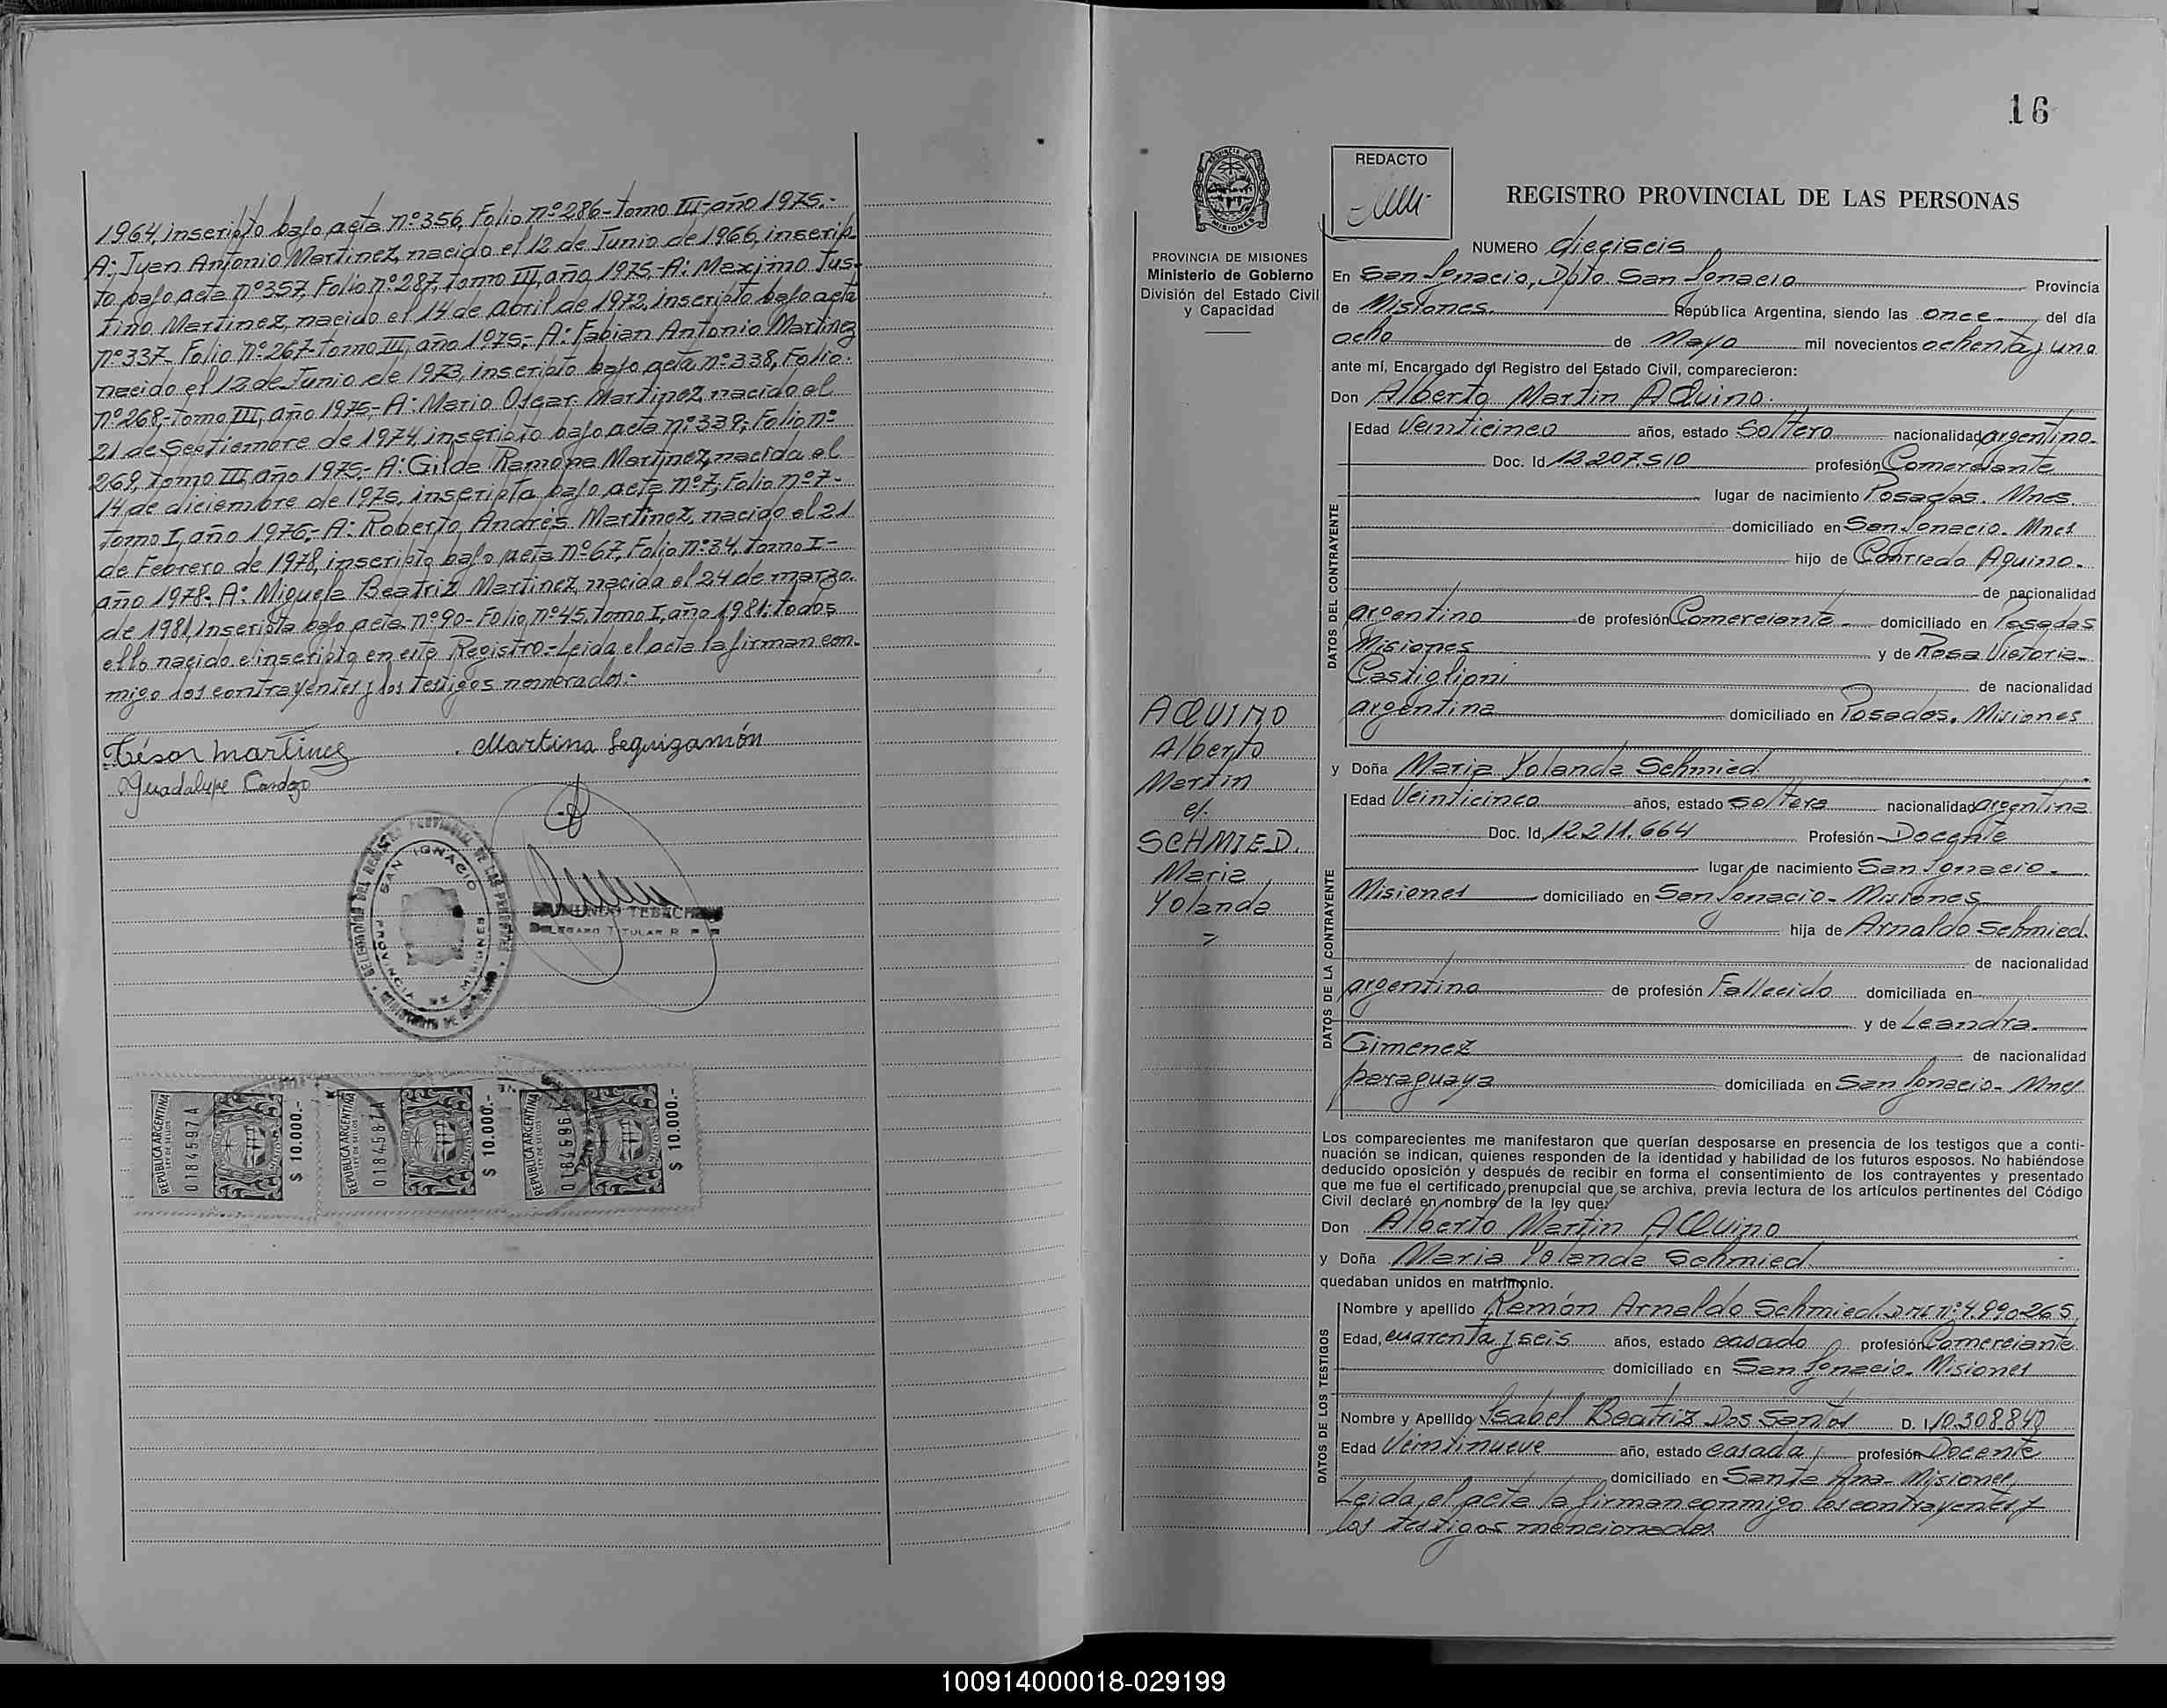 1964, inscripto bajo acta nº 356, Folio nº 286- tomo III- año 1975.-
A: Juan Antonio Martinez, nacido el 12 de Junio de 1966, inscrip-
to bajo acta nº 357, Folio nº 287, tomo III, año 1975- A: Maximo Jus-
tino Martinez, nacido el 14 de abril de 1972, inscripto bajo acta
nº 337- Folio nº 267- tomo III, año 1975- A: Fabian Antonio Martinez
nacido el 12 de Junio de 1973, inscripto bajo acta nº 338, Folio
nº 268,- tomo III, año 1975,- A: Mario Oscar Martinez, nacido el
21 de Septiembre de 1974, inscripto bajo acta nº 339, Folio nº
269, tomo III, año 1975,- A: Gilda Ramona Martinez, nacida el
14 de diciembre de 1975, inscripta bajo acta nº 7, Folio nº 7-
tomo I, año 1976,- A: Roberto Andrés Martinez, nacido el 21
de Febrero de 1978, inscripto bajo acta nº 67, Folio nº 34, tomo I-
año 1978- A: Miguela Beatriz Martinez, nacida el 24 de marzo
de 1981, inscripta bajo acta nº 90- Folio nº 45, tomo I, año 1981. todos
ello nacido e inscripto en este Registro.- Leida el acta la firman con-
migo los contrayentes y los testigos nombrados.-
César Martinez Martina Leguizamón
Guadalupe Cardozo
SAN IGNACIO
PROVINCIA DE MISIONES
DELEGADO TITULAR
REPUBLICA ARGENTINA
0184597 A
$ 10.000.-
REPUBLICA ARGENTINA
0184587 A
$ 10.000.-
REPUBLICA ARGENTINA
0184596
$ 10.000.-
16
REDACTO
REGISTRO PROVINCIAL DE LAS PERSONAS
PROVINCIA DE MISIONES
Ministerio de Gobierno
División del Estado Civil
y Capacidad
AQUINO
Alberto
Martin
c/.
SCHMIED.
Maria
Yolanda
NUMERO dieciseis
En San Ignacio, Dpto. San Ignacio Provincia
de Misiones. República Argentina, siendo las once- del día
ocho de Mayo mil novecientos ochenta y uno
ante mí, Encargado del Registro del Estado Civil, comparecieron:
Don Alberto Martin AQuino.
DATOS DEL CONTRAYENTE
Edad Veinticinco años, estado Soltero nacionalidad argentino-
Doc. Id 12.207.510 profesión Comerciante
lugar de nacimiento Posadas. Mnes.
domiciliado en San Ignacio. Mnes
hijo de Conrrado Aquino.
de nacionalidad
argentino de profesión Comerciante- domiciliado en Posadas
Misiones y de Rosa Victoria-
Castiglioni de nacionalidad
argentina domiciliado en Posadas. Misiones
y Doña Maria Yolanda Schmied.
DATOS DE LA CONTRAYENTE
Edad Veinticinco años, estado soltera nacionalidad argentina
Doc. Id, 12.211.664 Profesión Docente
lugar de nacimiento San Ignacio-
Misiones domiciliado en San Ignacio- Misiones
hija de Arnaldo Schmied.
de nacionalidad
argentino de profesión Fallecido domiciliada en
y de Leandra.
Gimenez de nacionalidad
paraguaya domiciliada en San Ignacio- Mnes
Los comparecientes me manifestaron que querían desposarse en presencia de los testigos que a conti-
nuación se indican, quienes responden de la identidad y habilidad de los futuros esposos. No habiéndose
deducido oposición y después de recibir en forma el consentimiento de los contrayentes y presentado
que me fue el certificado prenupcial que se archiva, previa lectura de los artículos pertinentes del Código
Civil declaré en nombre de la ley que:
Don Alberto Martin AQuino
y Doña Maria Yolanda Schmied.
quedaban unidos en matrimonio.
DATOS DE LOS TESTIGOS
Nombre y apellido Ramón Arnaldo Schmied. DNI nº 4.990265
Edad, cuarenta y seis años, estado casado profesión Comerciante
domiciliado en San Ignacio. Misiones
Nombre y Apellido Isabel Beatriz Dos Santos D. I, 10.308.840
Edad Veintinueve año, estado casada profesión Docente
domiciliado en Santa Ana- Misiones
Leida el acta la firman conmigo los contrayentes y
los testigos mencionados.
100914000018-029199